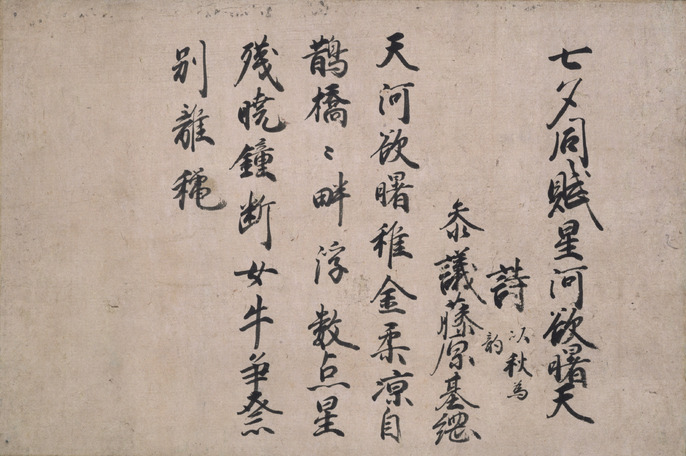 七夕同賦星河欲曙天
詩 以秋為
韵
参議藤原基綱
天河欲曙稚金柔凉自
鵲橋〻畔浮数点星
残暁鐘断女牛争奈
別離穐